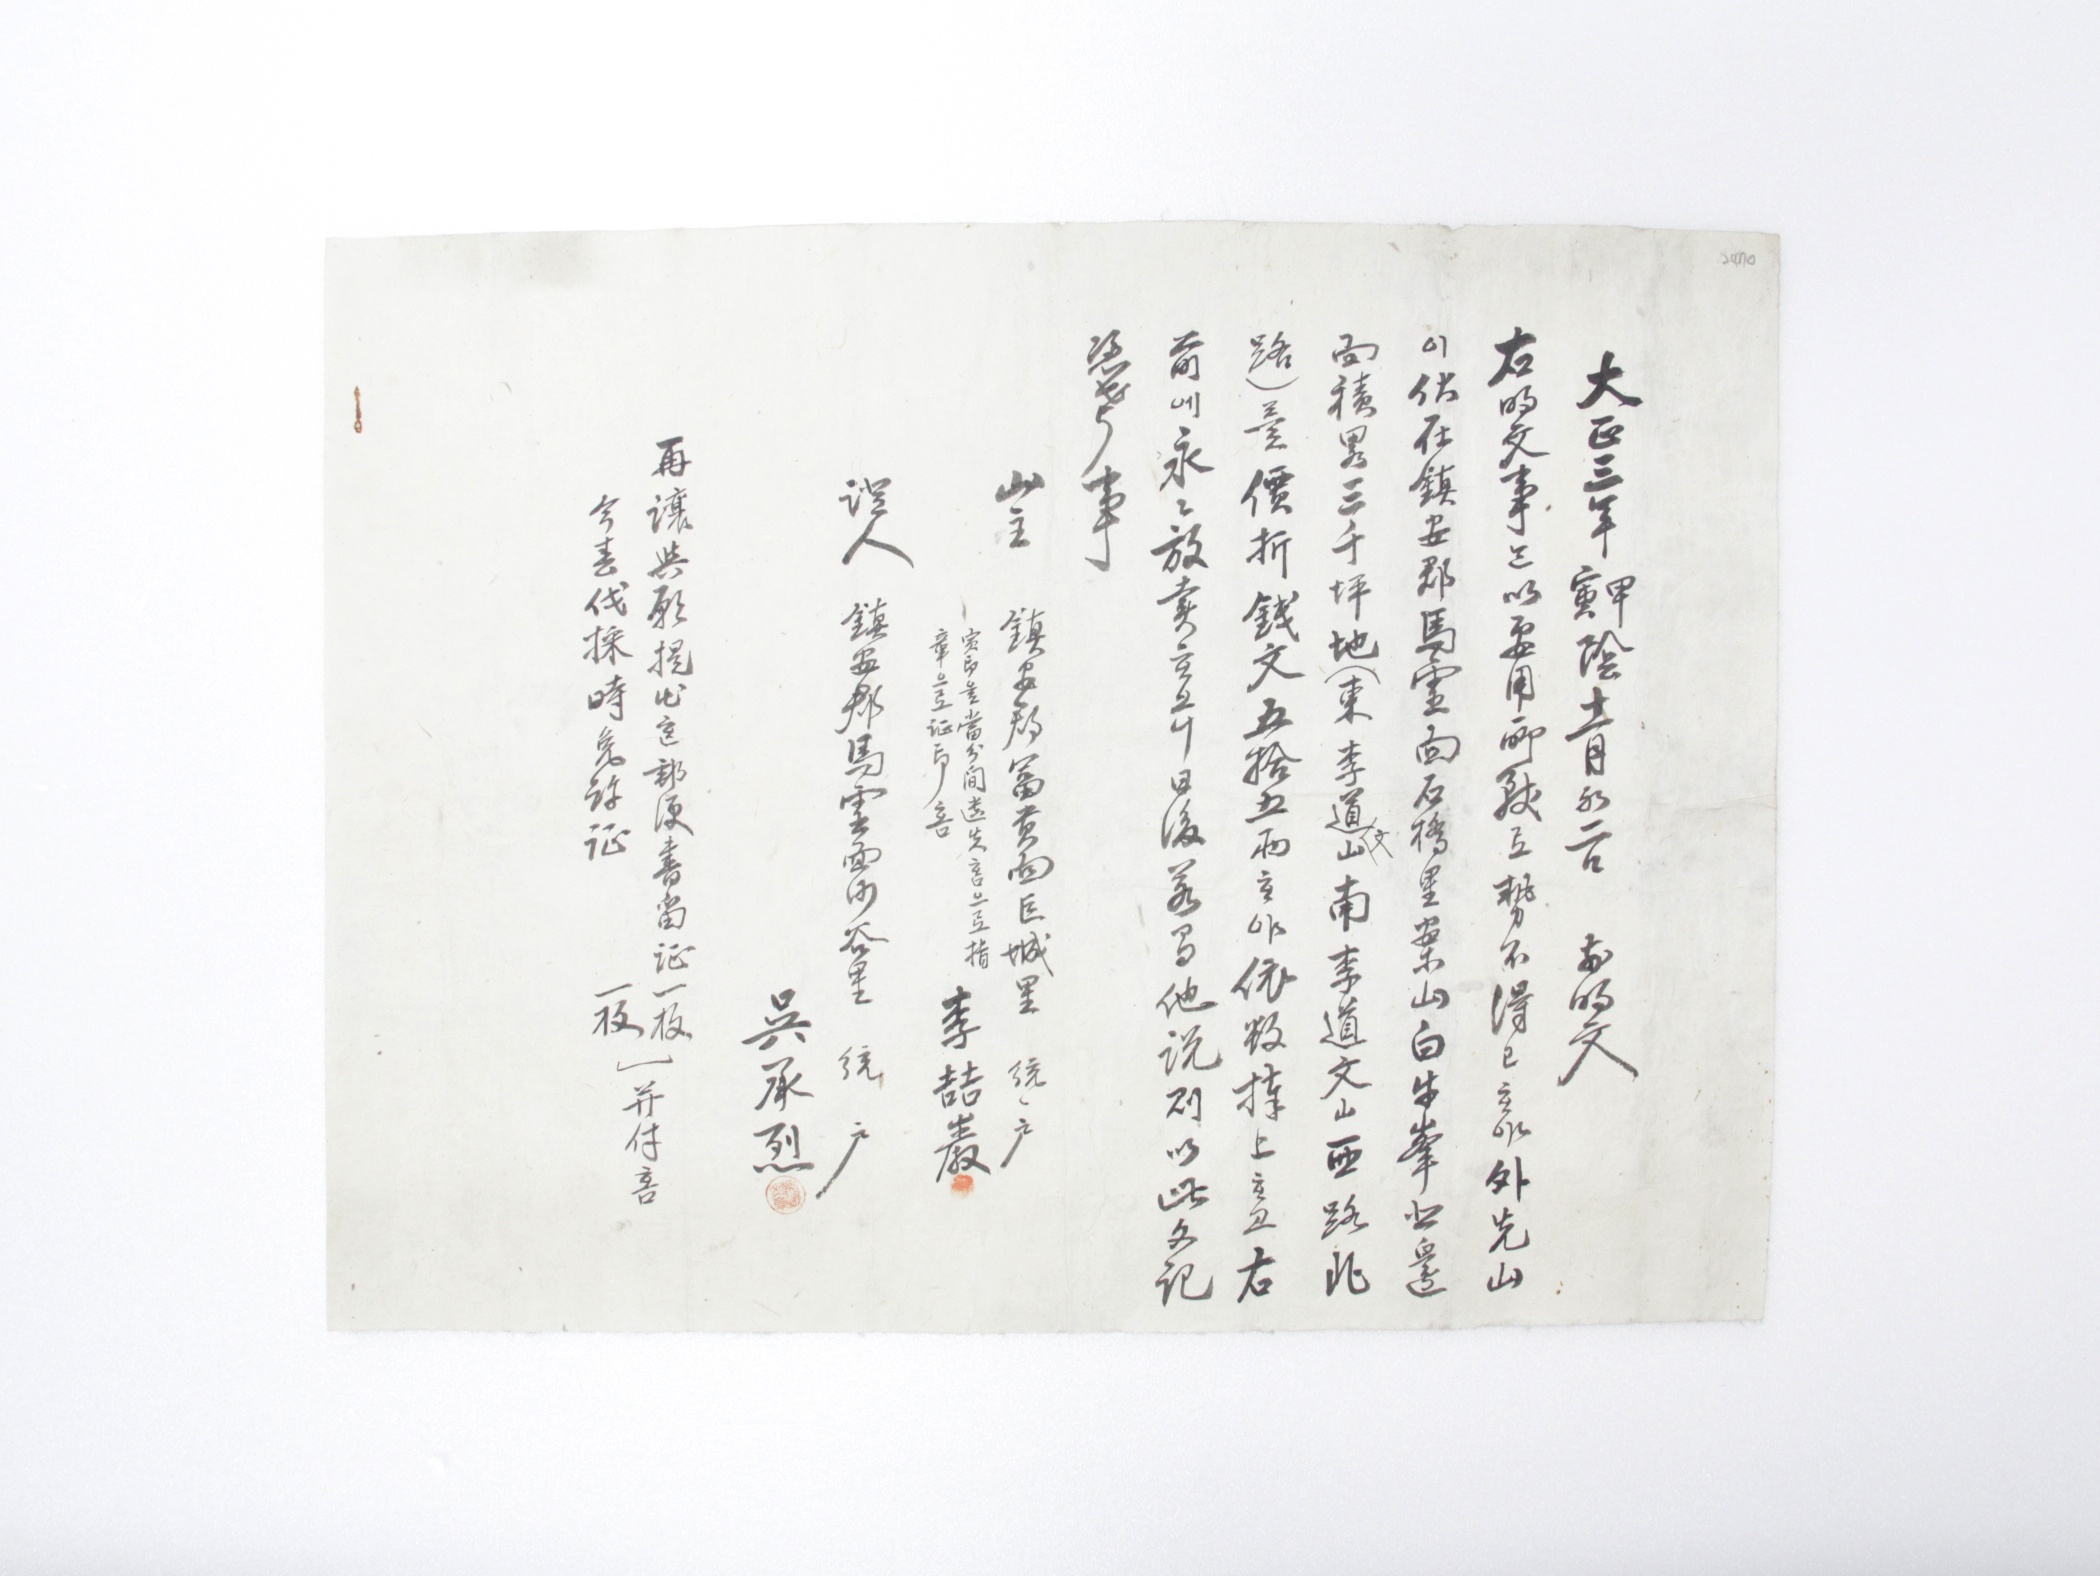 大正三年甲寅陰十一月初二日 前明文
右明文事는以要用所致로勢不得已하야外先山
이伏在鎮安郡馬靈面石橋里案山白牛峯北邊
面積畧三千坪地(東李道文山南李道文山西路北
路)를價折錢文五拾五兩하야依數捧上하고右
前에永々放賣하오니日後若有他說則以此文記
憑考事
山主 鎮安郡富貴面巨城里 統 戶
李喆嚴
實印는當分間遺失喜으로指
章으로証印喜
證人 鎮安郡馬靈面沙谷里 統 戶
吳承烈
再讓與願提出에郵便書留証一枚
今春伐採時免許証 一枚
并付喜
2470